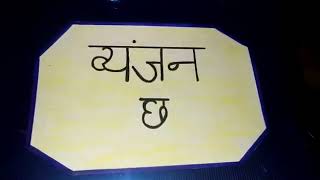 व्यंजन
छ